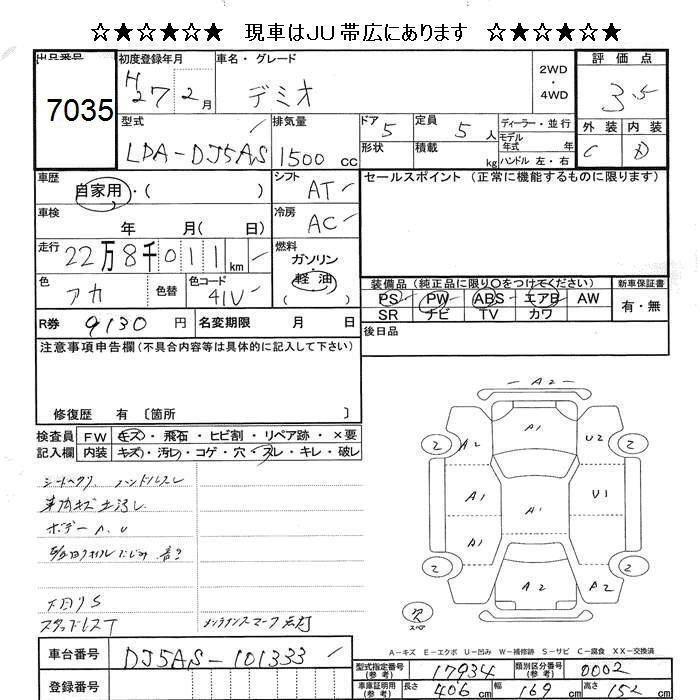 ☆★☆★☆ 現車はJU帯広にあります ☆★☆★☆
出品番号 7035
初度登録年月 H27 2月
車名・グレード デミオ
2WD・4WD
評価点 3.5
外装 C 内装 D
型式 LDA-DJ5AS
排気量 1500 cc
ドア 5
形状
定員 5人
積載 kg
ディーラー・並行
モデル年式 年
ハンドル 左・右
車歴 自家用・( )
シフト AT
車検 年 月( 日)
冷房 AC
走行 22万8千011 km
燃料 ガソリン・軽油 ( )
色 アカ 色替
色コード 41V
R券 9130 円
名変期限 月 日
セールスポイント(正常に機能するものに限ります)
装備品(純正品に限り○をつけてください)
新車保証書
PS PW ABS エアB AW
SR ナビ TV カワ
有・無
後日品
注意事項申告欄(不具合内容等は具体的に記入して下さい)
修復歴 有 〔箇所
検査員記入欄
FW キズ・飛石・ヒビ割・リペア跡・×要
内装 キズ・汚レ・コゲ・穴・スレ・キレ・破レ
ハンドルスレ
ボデーA、U
下回りS
スタッドレスT
メンテナンスマーク点灯
A2
A1
A2
U2
A1
U1
A1
A2
A2
2
2
2
2
欠
スペア
A－キズ E－エクボ U－凹み W－補修跡 S－サビ C－腐食 XX－交換済
車台番号 DJ5AS-101333
登録番号
型式指定番号(参考) 17934
類別区分番号(参考) 0002
車庫証明用(参考) 長さ 406 cm 幅 169 cm 高さ 152 cm